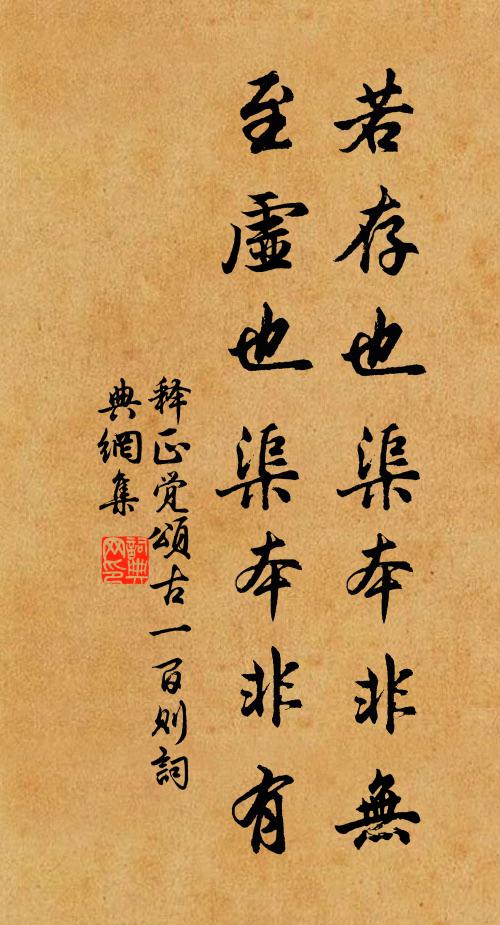 若存也渠本非無
至虛也渠本非有
释正觉頌古一百则詞
典網集
詞典網印